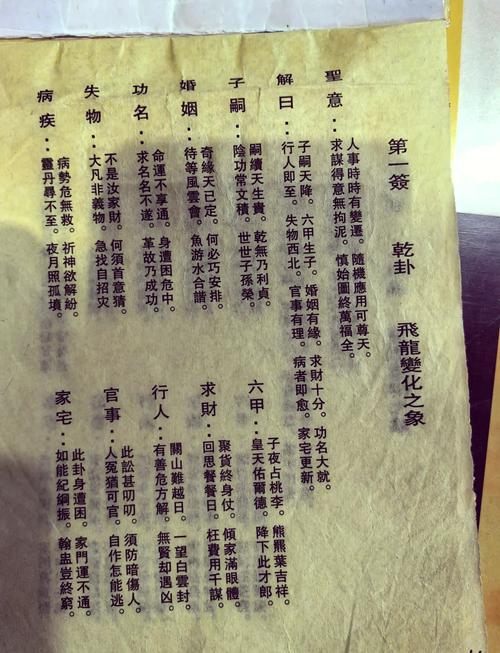 第一簽 乾卦 飛龍變化之象
聖意：人事時時有變遷。隨機應用可尊天。
求謀得意無拘泥。慎始圖終萬福全。
解曰：子嗣天降。六甲生子。婚姻有緣。求財十分。功名大就。
行人即至。失物西北。官事有理。病者即愈。家宅更新。
子嗣：嗣續天生貴。乾無乃利貞。
陰功常文積。世世子孫榮。
婚姻：奇緣天已定。何必巧安排。
待等風雲會。魚游水合諧。
功名：命運不享通。身遭困危中。
求名名不遂。革故乃成功。
失物：不是汝家財。何須首意猜。
大凡非義物。急找自招灾
病疾：病勢危無救。祈神欲解紛。
靈丹尋不至。夜月照孤墳。
六甲：子夜占桃李。熊羆葉吉祥。
皇天佑爾德。降下此才郎。
求財：聚貨終身仗。傾家滿眼體。
回思餐餐日。枉費用千謀。
行人：關山難越日。一望白雲封。
有善危方解。無賢却遇凶。
官事：此訟甚叨叨。須防暗傷人。
人冤猶可官。自作怎能逃。
家宅：此卦身遭困。家門運不通。
如能紀綱振。翰蛊豈終窮。